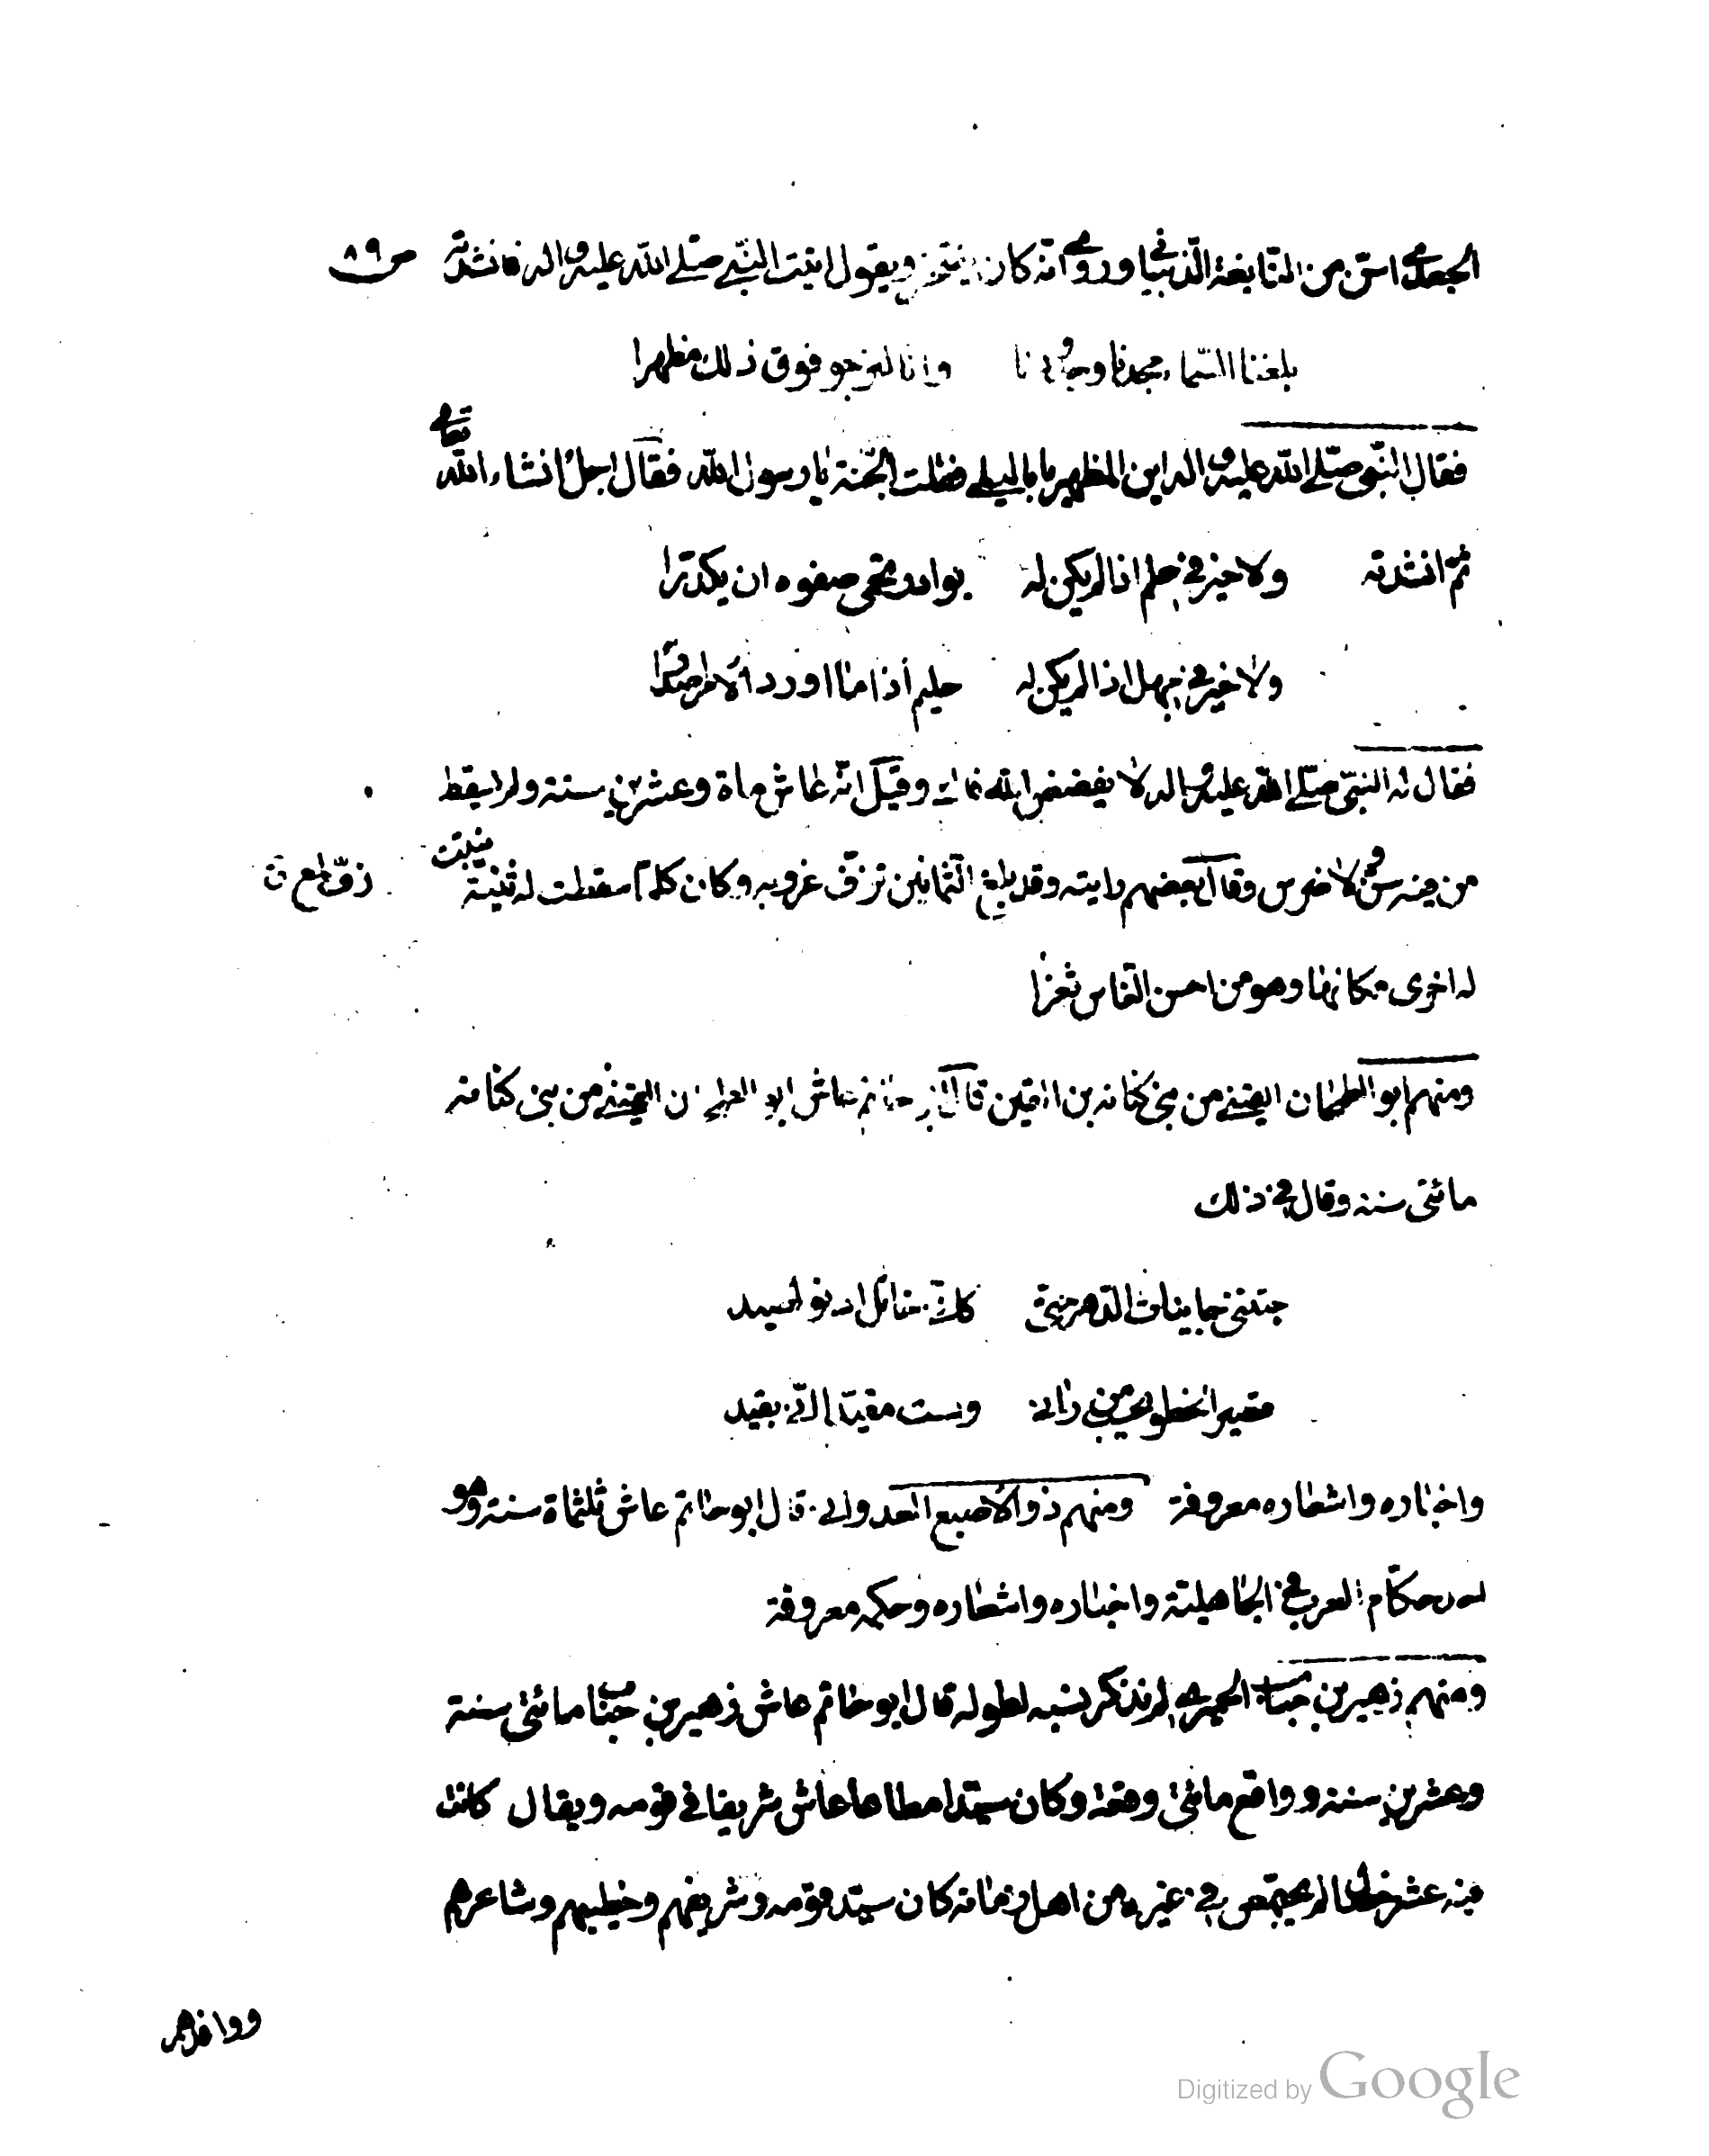 الجعدي اسن من النابغة الذبياني وروي انه كان يفتخر ويقول اتيت النبي صلى الله عليه واله فانشدته ص ٨٩
بلغنا السماء مجدنا وجدودنا وانا لنرجو فوق ذلك مظهرا
فقال النبي صلى الله عليه واله اين المظهر يا باليلى فقلت الجنة يا رسول الله فقال اجل انشاء الله تعالى
ثم انشدته ولا خير في حلم اذا لم يكن له بوادر تحمي صفوه ان يكدرا
ولا خير في جهل اذا لم يكن له حليم اذا ما اورد الامر اصدرا
فقال له النبي صلى الله عليه واله لا يفضض الله فاك وقيل انه عاش ماة وعشرين سنة ولم يسقط
من فيه سن ولا ضرس وقال بعضهم رايته وقد بلغ الثمانين ترف غروبه وكان كلما سقطت له ثنية نبتت
له اخرى مكانها وهو من احسن الناس ثغرا
ومنهم ابو الطمحان القيني من بني كنانة بن القين قال ابو حاتم عاش ابو الطمحان القيني من بني كنانه
مائتي سنة وقال في ذلك
حنتني حانيات الدهر حتى كاني خاتل ادنو لصيد
قصير الخطو يحسب من راني ولست مقيدا اني بقيد
واخباره واشعاره معروفة ومنهم ذو الاصبع العدواني قال ابو حاتم عاش ثلثماة سنة وهو
احد حكام العرب في الجاهلية واخباره واشعاره وحكمه معروفة
ومنهم زهير بن جناب الحميري لم نذكر نسبه لطوله قال ابو حاتم عاش زهير بن جناب مائتي سنة
وعشرين سنة وواقع مائتي وقعة وكان سيدا مطاعا عاش شريفا في قومه ويقال كانت
فيه عشر خصال لم يجتمعن في غيره من اهل زمانه كان سيد قومه وشريفهم وخطيبهم وشاعرهم
ووافدهم
Digitized by Google